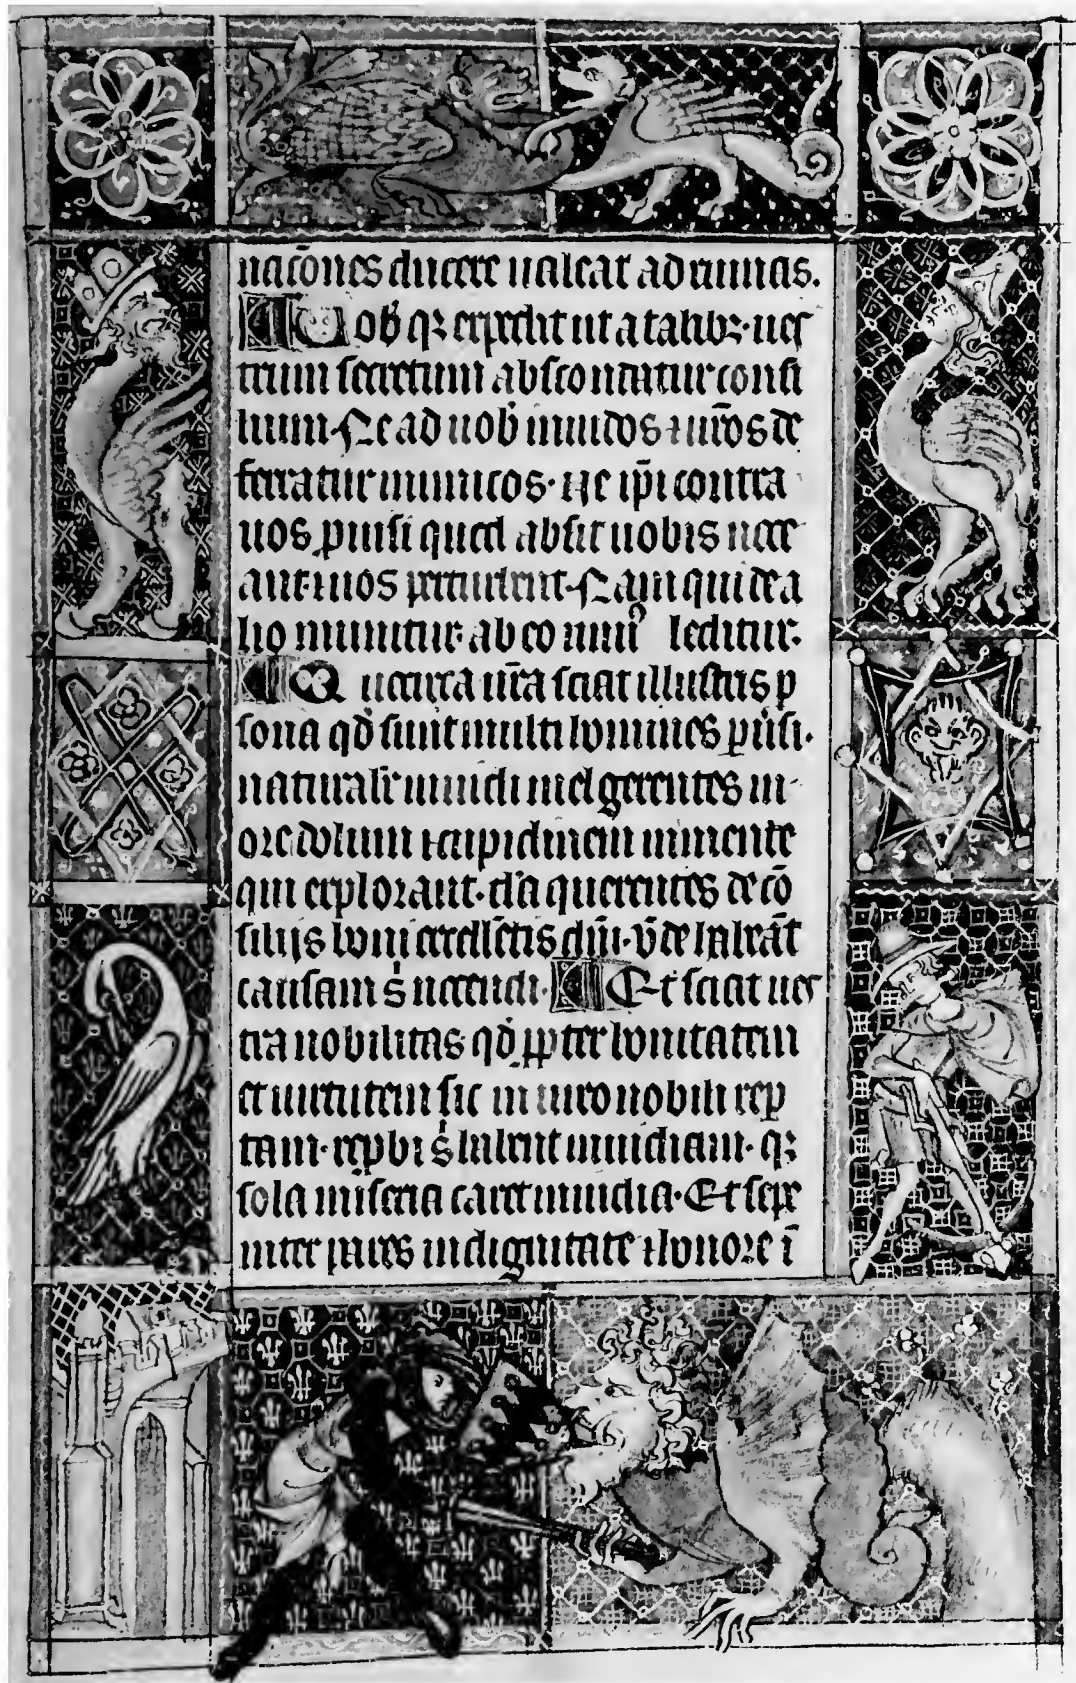 nac̄ones ducere ualeat ad ruinas.
Uob̄ qꝫ expedit ut a talibꝫ ues
trum secretum abscondatur consi
lium. Ne ad uob̄ inuidos ⁊ ur̄os de
feratur inimicos. Ne ip̄i contra
uos puisi quod absit uobis noce
ant. uos perturbent. Nam qui de a
lio munitur. ab eo leditur.
Q ura sciat illustris p
sona qd̄ sunt multi homines puisi.
naturalr̄ inuidi mel gerentes in
ore dolum ⁊ cupidinem in mente
qui explorant. querentes de cō
silijs excellētis dn̄i. habeāt
causam s nocendi. Et sciat ues
tra nobilitas qd̄ ꝓpter bonitatem
et uirtutem sic in uiro nobili rep
tam. repbi s habent inuidiam. qꝫ
sola miseria caret inuidia. Et sepe
inter pares in dignitate ⁊ honore ī